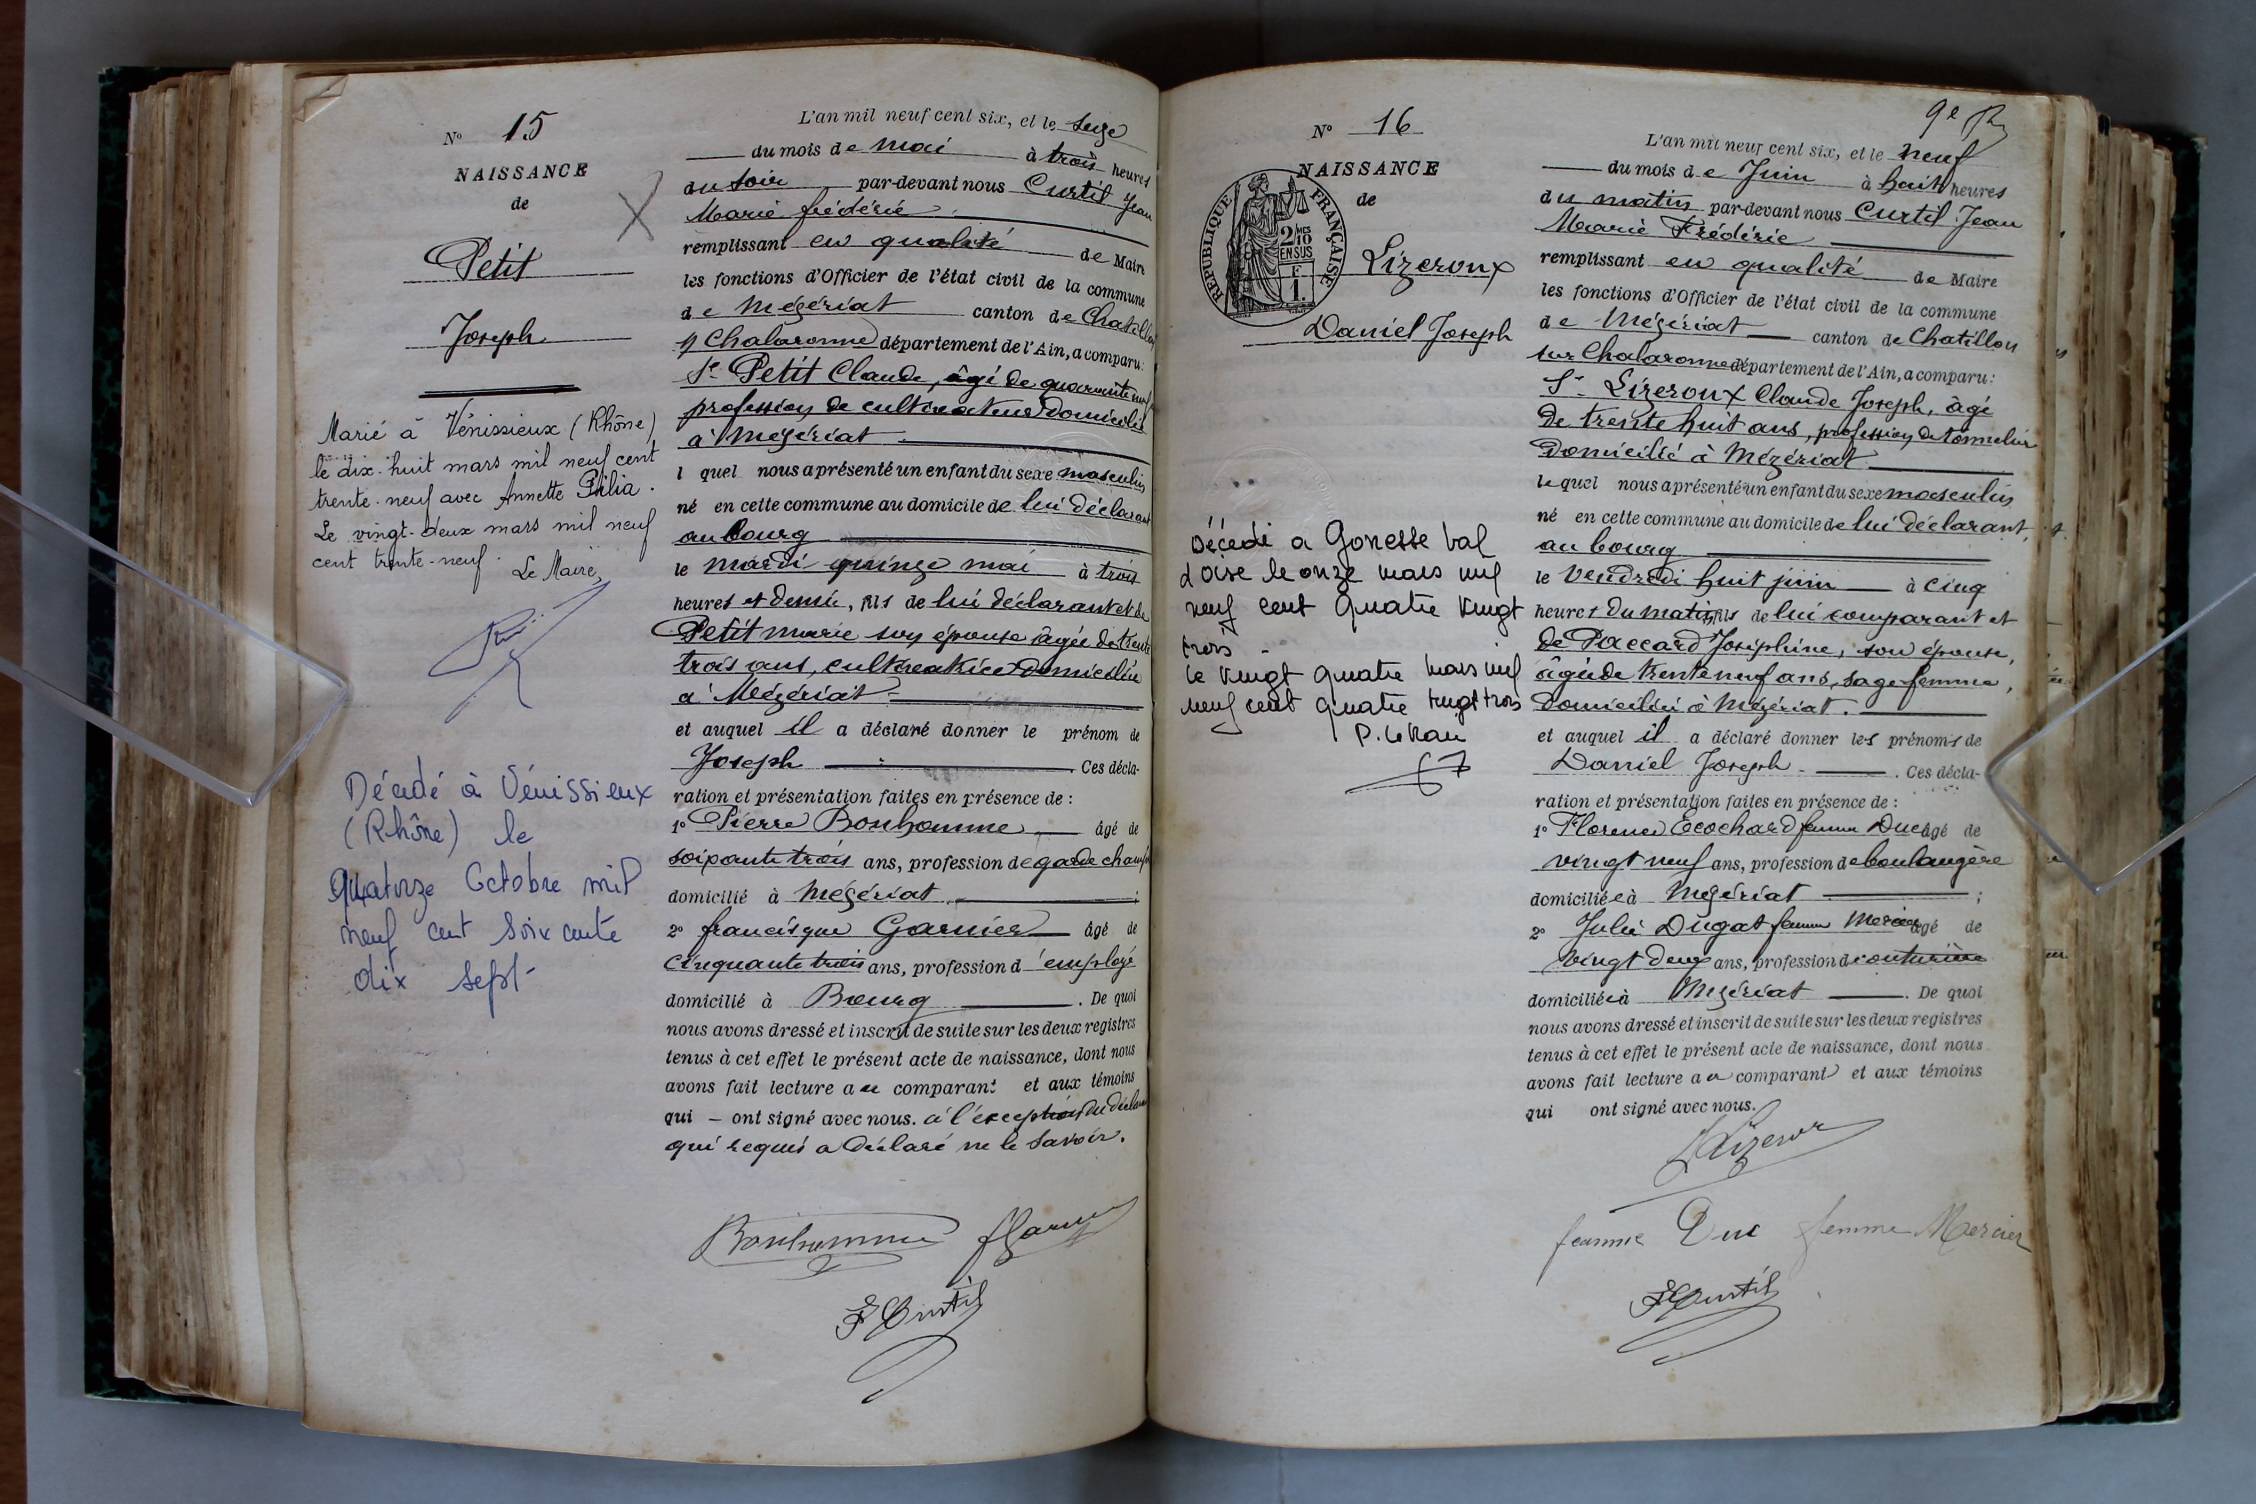 N° 15
NAISSANCE
de
Petit
Joseph
Marié à Vénissieux (Rhône)
le dix-huit mars mil neuf cent
trente-neuf avec Annette Pilia.
Le vingt-deux mars mil neuf
cent trente-neuf. Le Maire,
Décédé à Vénissieux
(Rhône) le
Quatorze Octobre mil
neuf cent soixante
dix sept
L'an mil neuf cent six, et le seize
du mois de mai à trois heures
du soir par-devant nous Curtil Jean
Marie frédéric
remplissant en qualité de Maire
les fonctions d'Officier de l'état civil de la commune
de Mézériat canton de Chatillon
s/ Chalaronne département de l'Ain, a comparu:
Sr Petit Claude, âgé de quarante neuf
profession de cultivateur domicilié
à Mézériat
l quel nous a présenté un enfant du sexe masculin
né en cette commune au domicile de lui déclarant
au bourg
le mardi quinze mai à trois
heures et demie, fils de lui déclarant et de
Petit marie son épouse âgée de trente
trois ans, cultivatrice domiciliée
à Mézériat
et auquel il a déclaré donner le prénom de
Joseph . Ces décla-
ration et présentation faites en présence de :
1° Pierre Bonhomme âgé de
soixante trois ans, profession de garde champ
domicilié à Mézériat ;
2° francisque Garnier âgé de
cinquante trois ans, profession d'employé
domicilié à Bourg . De quoi
nous avons dressé et inscrit de suite sur les deux registres
tenus à cet effet le présent acte de naissance, dont nous
avons fait lecture au comparant et aux témoins
qui – ont signé avec nous. à l'exception du déclarant
qui requis a déclaré ne le savoir.
Bonhomme fGarnier
F Curtil
N° 16
NAISSANCE
de
REPUBLIQUE FRANÇAISE
2/10 MES
EN SUS
F
1.
Lizeroux
Daniel Joseph
Décédé a Gonesse Val
d'oise le onze mars mil
neuf cent Quatre vingt
trois -
le vingt quatre mars mil
neuf cent quatre vingt trois
9e
L'an mil neuf cent six, et le neuf
du mois de Juin à huit heures
du matin par-devant nous Curtil Jean
Marie Frédéric
remplissant en qualité de Maire
les fonctions d'Officier de l'état civil de la commune
de Mézériat canton de Chatillon
sur Chalaronne département de l'Ain, a comparu:
Sr Lizeroux Claude Joseph, âgé
de trente huit ans, profession de tonnelier
domicilié à Mézériat
le quel nous a présenté un enfant du sexe masculin
né en cette commune au domicile de lui déclarant,
au bourg
le Vendredi huit juin à cinq
heures du matin, fils de lui comparant et
de Paccard Joséphine, son épouse,
âgée de trente neuf ans, sage femme,
domiciliée à Mézériat.
et auquel il a déclaré donner les prénoms de
Daniel Joseph . Ces décla-
ration et présentation faites en présence de :
1° Florence Ecochard femme Duc âgé de
vingt neuf ans, profession de boulangère
domiciliée à Mézériat ;
2° Julie Dugat femme Mercier âgé de
vingt deux ans, profession d couturière
domiciliée à Mézériat . De quoi
nous avons dressé et inscrit de suite sur les deux registres
tenus à cet effet le présent acte de naissance, dont nous
avons fait lecture au comparant et aux témoins
qui ont signé avec nous.
Lizeroux
femme Duc femme Mercier
F Curtil